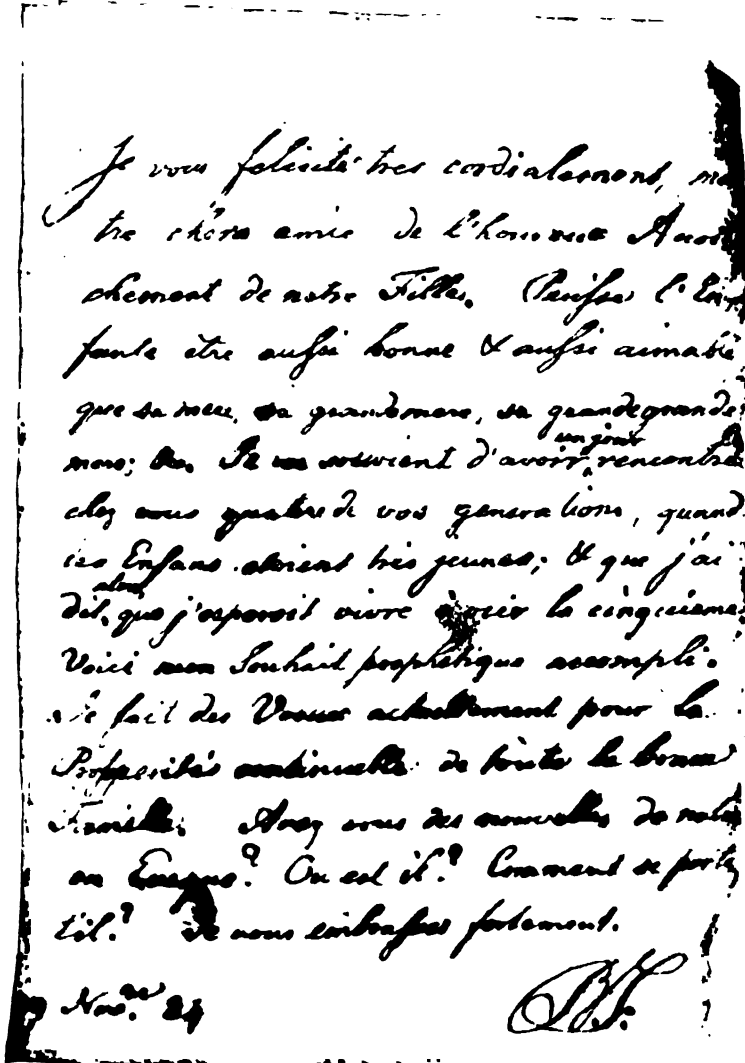 Je vous felicité tres cordialement, ma
tre chere amie de l'heureux Accou
chement de notre Fille. Puisse l'En
fante être aussi bonne & aussi aimable
que sa mere, sa grandemere, sa grandegrande
mere; &c. Je me souvient d'avoir un jour rencontré
chez vous quatre de vos generations, quand
ces Enfans etoient tres jeunes; & que j'ai
dit alors, que j'esperoit vivre à voir la cinquieme.
Voici mon Souhait prophetique accompli.
Je fait des Voeux actuellement pour la
Prosperité continuelle de toute la bonne
Famille. Avez vous des nouvelles de notre
on ? Ou est il? Comment se porte
t'il? Je vous embrasse fortement.
Novre 24
BF.